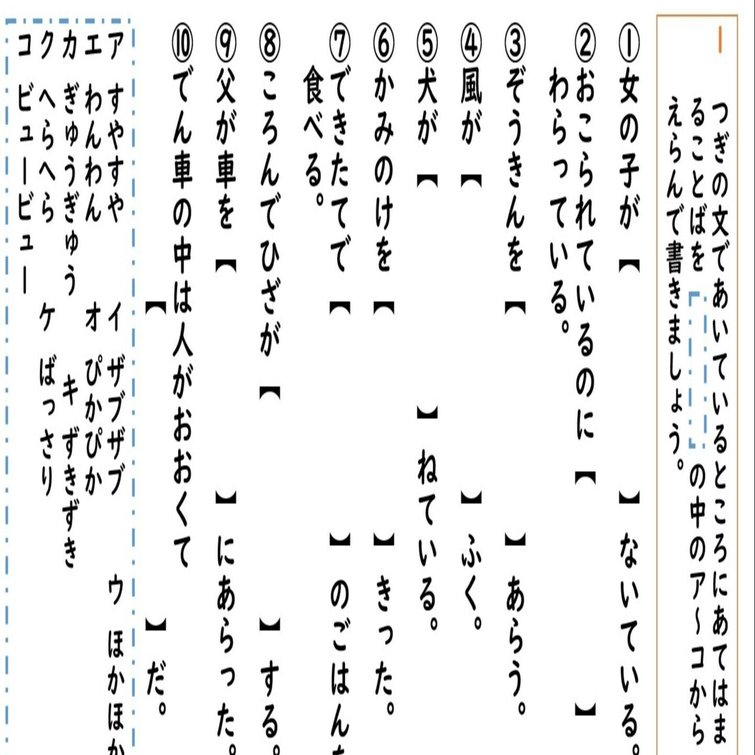 一
つぎの文であいているところにあてはま
ることばを　　　　の中のア〜コから
えらんで書きましょう。
①女の子が【　　　】ないている。
②おこられているのに【　　　】
わらっている。
③ぞうきんを【　　　】あらう。
④風が【　　　】ふく。
⑤犬が【　　　】ねている。
⑥かみのけを【　　　】きった。
⑦できたてで【　　　】のごはんを
食べる。
⑧ころんでひざが【　　　】する。
⑨父が車を【　　　】にあらった。
⑩でん車の中は人がおおくて
【　　　】だ。
ア　すやすや　イ　ザブザブ　ウ　ほかほか
エ　わんわん　オ　ぴかぴか
カ　ぎゅうぎゅう　キ　ずきずき
ク　へらへら　ケ　ばっさり
コ　ビュービュー